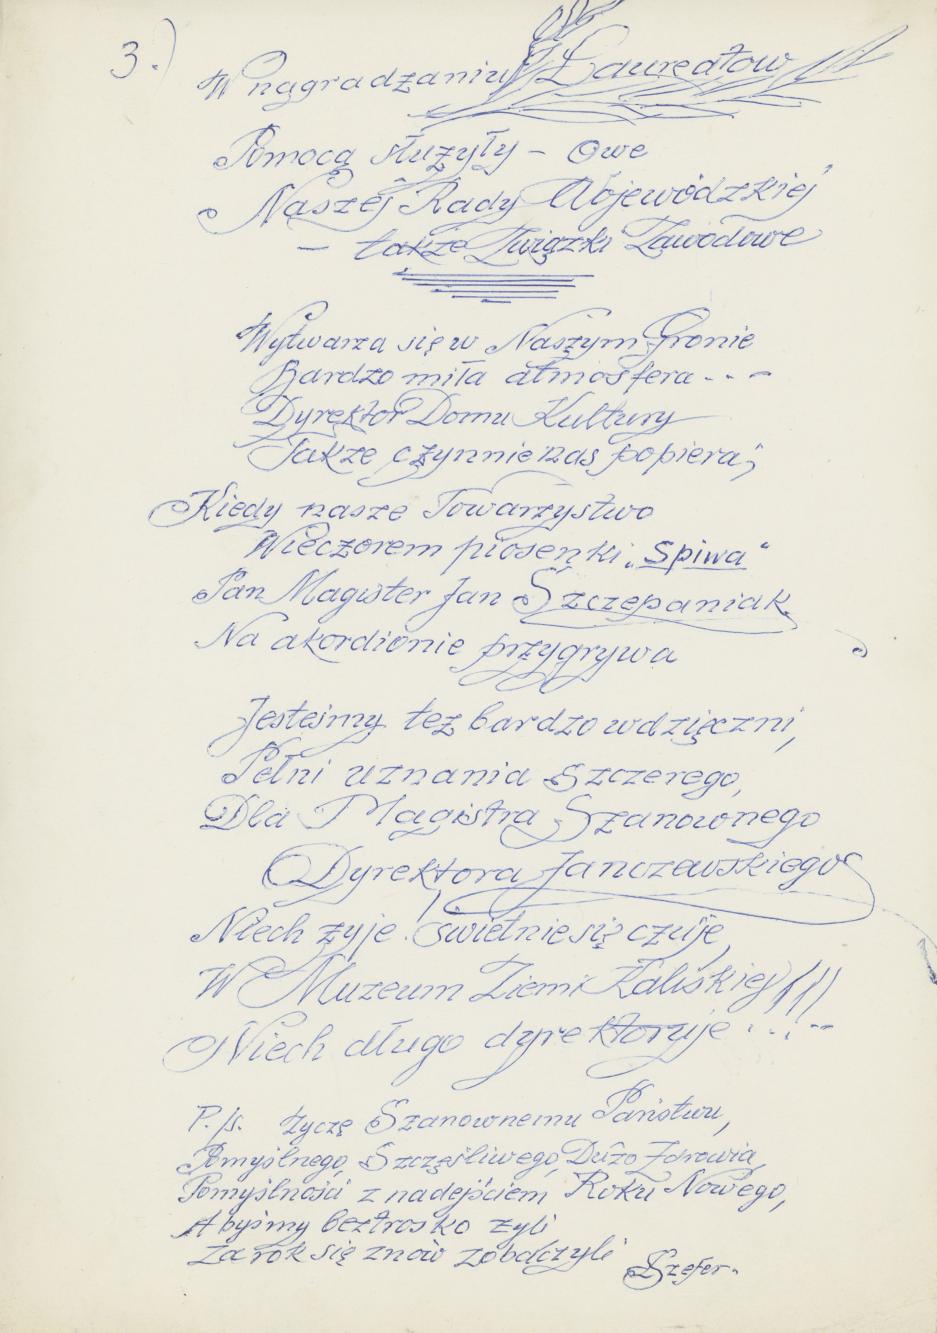 3.)
W nagradzaniu Laureatow
Pomocą służyły - Owe
Naszej Rady Wojewódzkiej
- także Związki Zawodowe
Wytwarza się w Naszym Gronie
Bardzo miła atmosfera - - -
Dyrektor Domu Kultury
Także czynnie nas popiera;
Kiedy nasze Towarzystwo
Wieczorem piosenki „Spiwa"
Pan Magister Jan Szczepaniak
Na akordionie przygrywa
Jesteśmy też bardzo wdzięczni,
Pełni uznania Szczerego,
Dla Magistra Szanownego
Dyrektora Janczewskiego
Niech żyje! świetnie się czuje,
W Muzeum Ziemi Kaliskiej!!!
Niech długo dyrektoruje . . . --
P.s. życzę Szanownemu Państwu,
Pomyślnego, Szczęśliwego, Dużo Zdrowia,
Pomyślności z nadejściem Roku Nowego,
Abyśmy beztrosko żyli
Za rok się znów zobaczyli
Szefer.